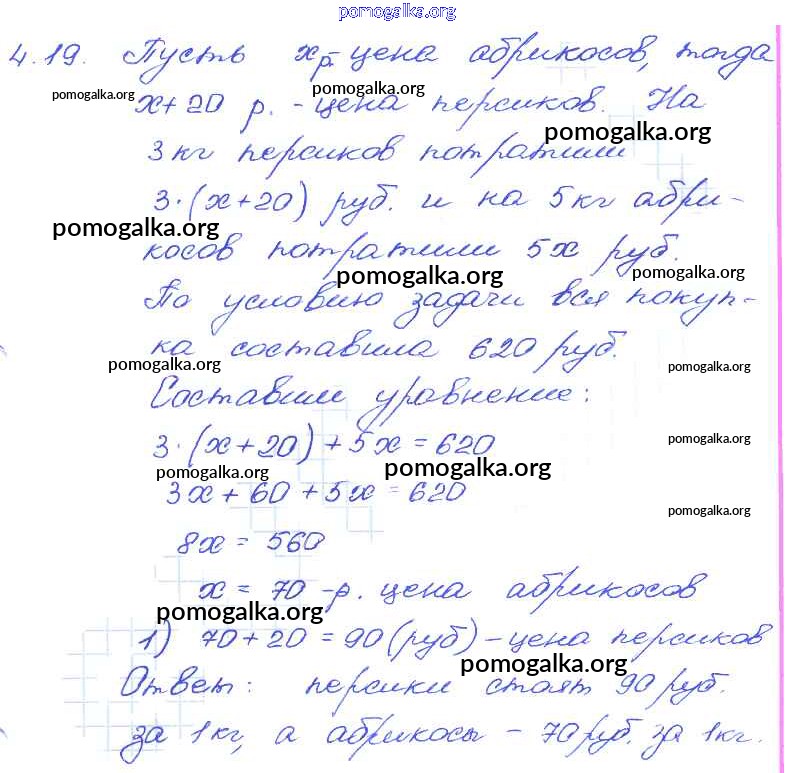 pomogalka.org
4.19. Пусть x р. - цена абрикосов, тогда
pomogalka.org pomogalka.org
x + 20 р. - цена персиков. На
pomogalka.org
3 кг персиков потратили
3·(x+20) руб. и на 5 кг абри-
pomogalka.org
косов потратили 5x руб.
pomogalka.org pomogalka.org
По условию задачи вся покуп-
ка составила 620 руб.
pomogalka.org pomogalka.org
Составим уравнение:
3·(x+20)+5x=620
pomogalka.org
pomogalka.org pomogalka.org
3x+60+5x=620
pomogalka.org
8x = 560
x = 70 - р. цена абрикосов
pomogalka.org
1) 70+20=90(руб) - цена персиков
pomogalka.org
Ответ: персики стоят 90 руб.
за 1кг, а абрикосы - 70 руб. за 1кг.